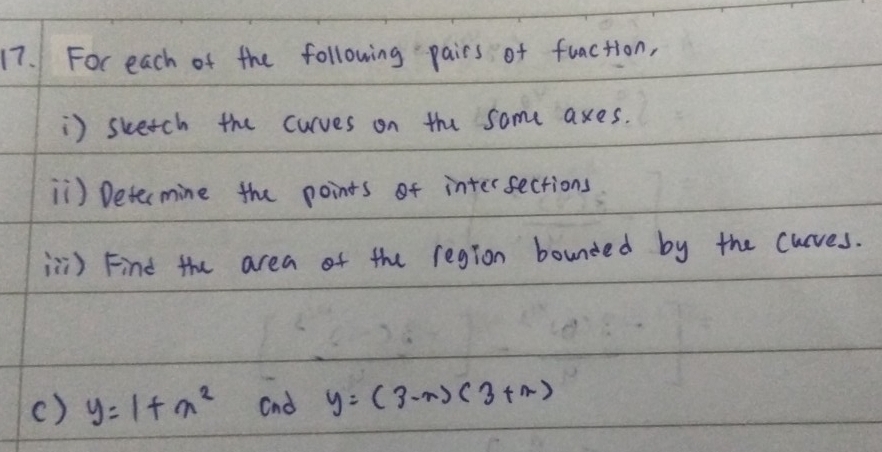 17. For each of the following pairs of function,
i) Sketch the curves on the same axes.
ii) Determine the points of intersections
iii) Find the area of the region bounded by the curves.
c) y = 1 + x² and y = (3-x)(3+x)